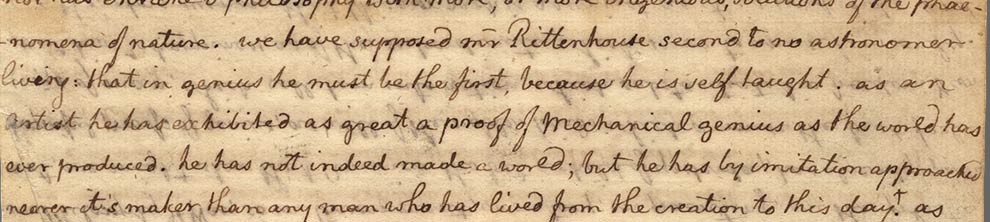 nor has enriched philosophy with more, or more ingenious, solutions of the phae-
-nomena of nature. we have supposed mr Rittenhouse second to no astronomer
living: that in genius he must be the first, because he is self-taught. as an
artist he has exhibited as great a proof of mechanical genius as the world has
ever produced. he has not indeed made a world; but he has by imitation approached
nearer it's maker than any man who has lived from the creation to this day.† as